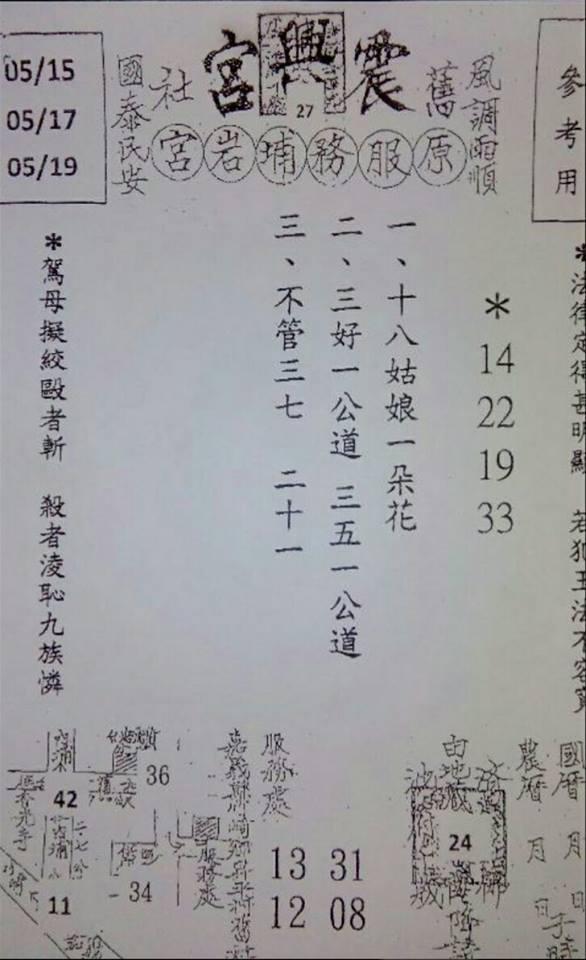 參考用
風調雨順
舊
震興宮
27
社
國泰民安
05/15
05/17
05/19
原服務埔岩宮
*法律定得甚明顯 若犯王法不容
*14 22 19 33
一、十八姑娘一朵花
二、三好一公道 三五一公道
三、不管三七 二十一
*駕母擬絞毆者斬 殺者淩恥九族憐
國曆 月 日
農曆 月 日
子時
由地藏
24
服務處
13 31
12 08
服務處
36
42
34
11